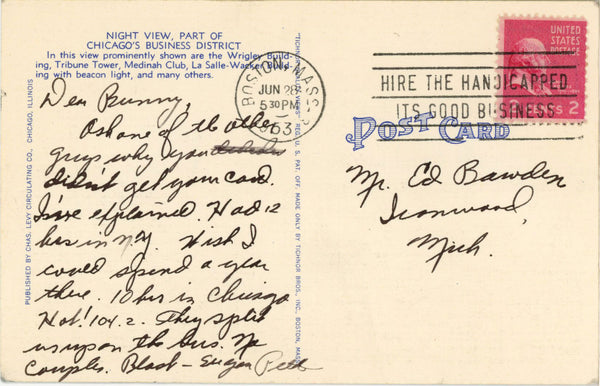 NIGHT VIEW, PART OF
CHICAGO'S BUSINESS DISTRICT
In this view prominently shown are the Wrigley Build-
ing, Tribune Tower, Medinah Club, La Salle-Wacker Build-
ing with beacon light, and many others.
Dear Bunny,
Ask one of the other
guys why you
didn't get your card.
I've explained. Had 12
hrs in N.Y. Wish I
could spend a year
there. 10 hrs in Chicago
Hot! 104.2. They split
us up on the bus. No
couples. Blast - Eugen
PUBLISHED BY CHAS. LEVY CIRCULATING CO., CHICAGO, ILLINOIS
REG. U. S. PAT. OFF. MADE ONLY BY TICHNOR BROS., INC., BOSTON, MASS.
BOSTON, MASS.
JUN 28
5 30 PM
1953
HIRE THE HANDICAPPED
ITS GOOD BUSINESS
UNITED
STATES
POSTAGE
2
POST CARD
Mr. Ed Bawden
Ironwood,
Mich.